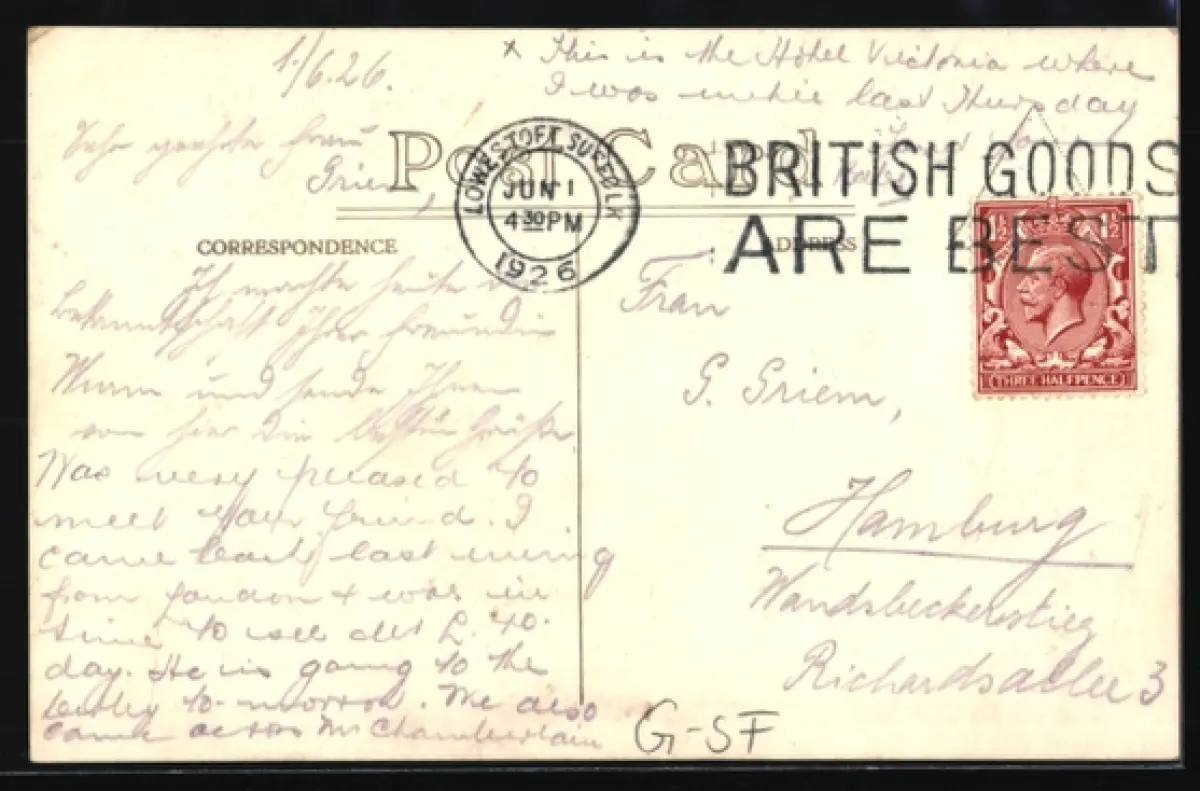 1./6.26.
x This is the Hotel Victoria where
I was last Thursday
Sehr geehrte Frau
Griem,
Post Card
LOWESTOFT. SUFFOLK
JUN 1
4 30 PM
1926
BRITISH GOODS
ARE BEST
CORRESPONDENCE
ADDRESS
1½ 1½
THREE HALFPENCE
Ich machte heute
Bekanntschaft Ihrer Freundin
und sende Ihnen
von hier die besten Grüße.
Was very pleased to
meet your friend. I
came back last evening
from London & was in
time to see L. to-
day. He is going to the
to-morrow. We also
came across Mr Chamberlain
Frau
G. Griem,
Hamburg
Wandsbeckerstieg
Richardsallee 3
G-SF